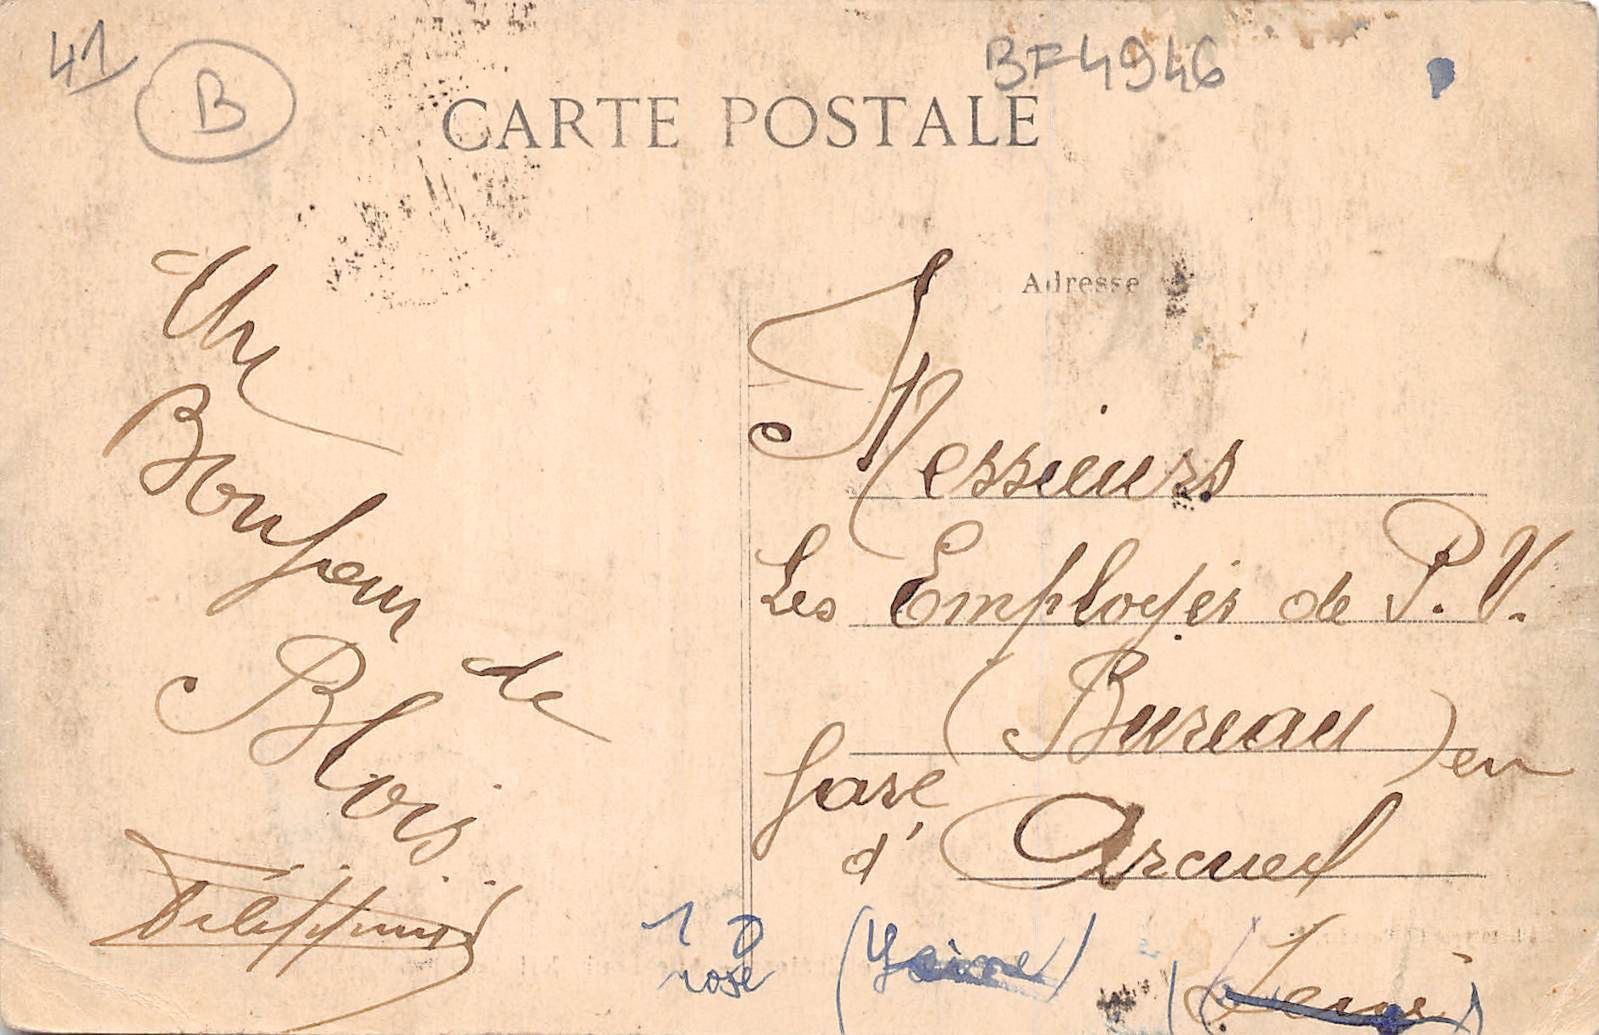 41
B
BF4946
CARTE POSTALE
Adresse
Un
Bonjour
de
Blois
Messieurs
Les Employés de P. V.
(Bureau) en
Gare
d'Arcueil
(Seine)
1
rose
(Seine)